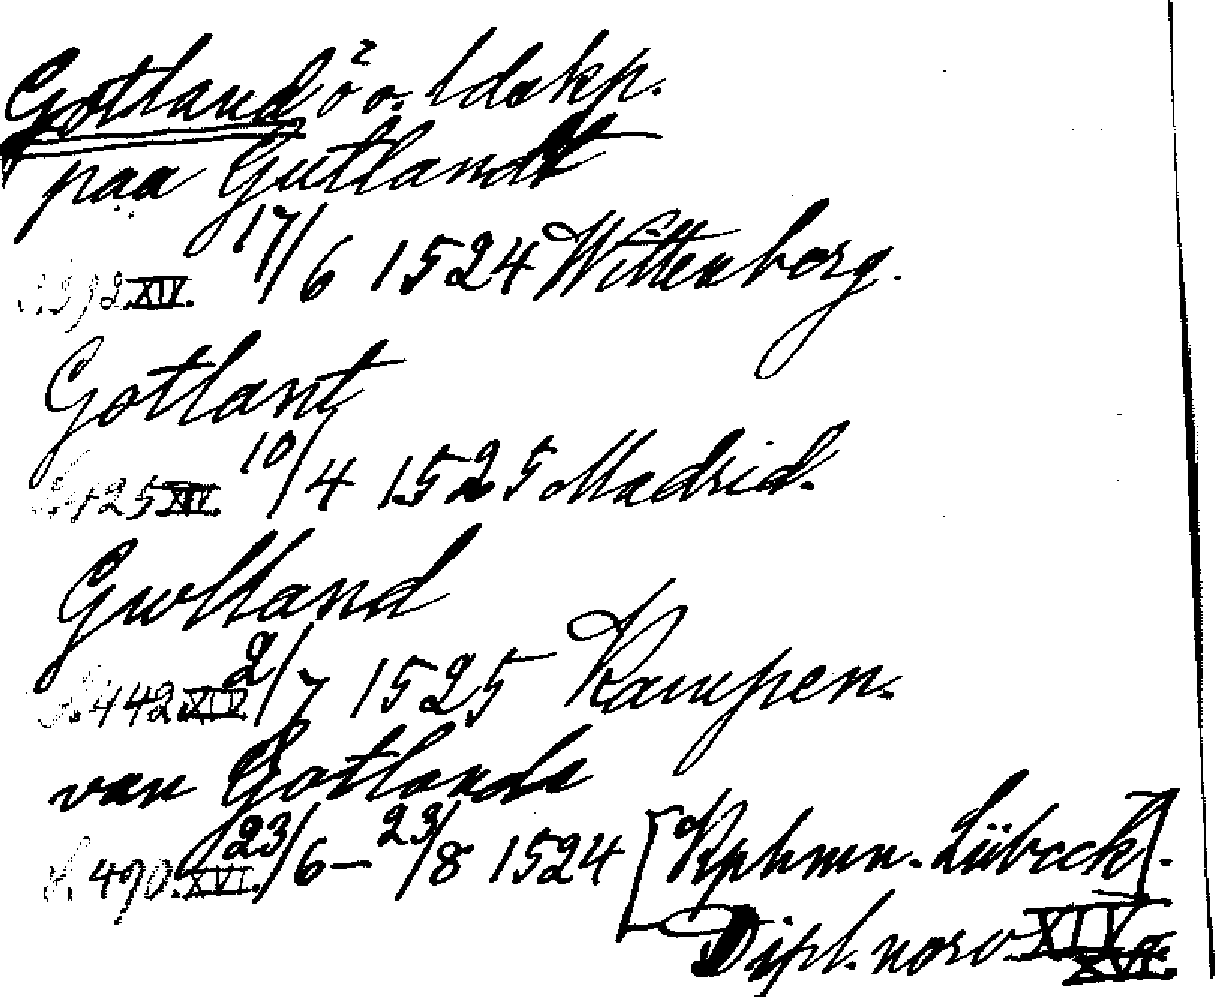 Gotland ö o. ldskp.
paa Gutlandt
S. 392 XIV. 17/6 1524 Wittenberg.
Gotlant
S. 425 XIV. 10/4 1525 Madrid.
Gwlland
S. 442 XIV. 2/7 1525 Kampen.
van Gotlande
S. 490. XVI. 23/6 – 23/8 1524 [Kphmn. Lübeck].
Dipl. norv. XIV o.
XVI.